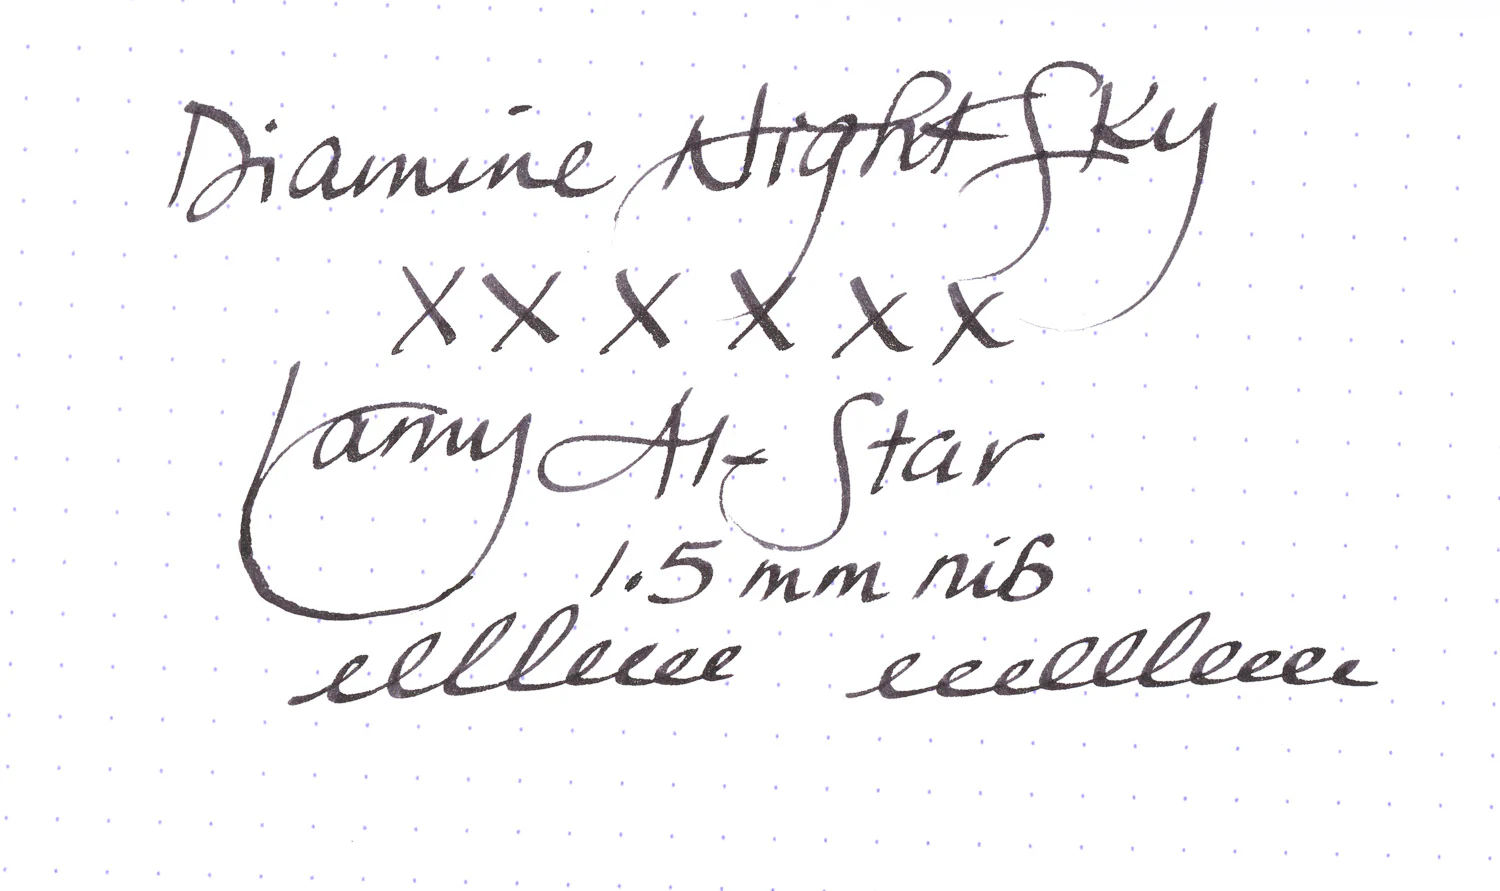 Diamine Night Sky
x x x x x x
Lamy Al-Star
1.5 mm nib
ellleeee eeelllleeee